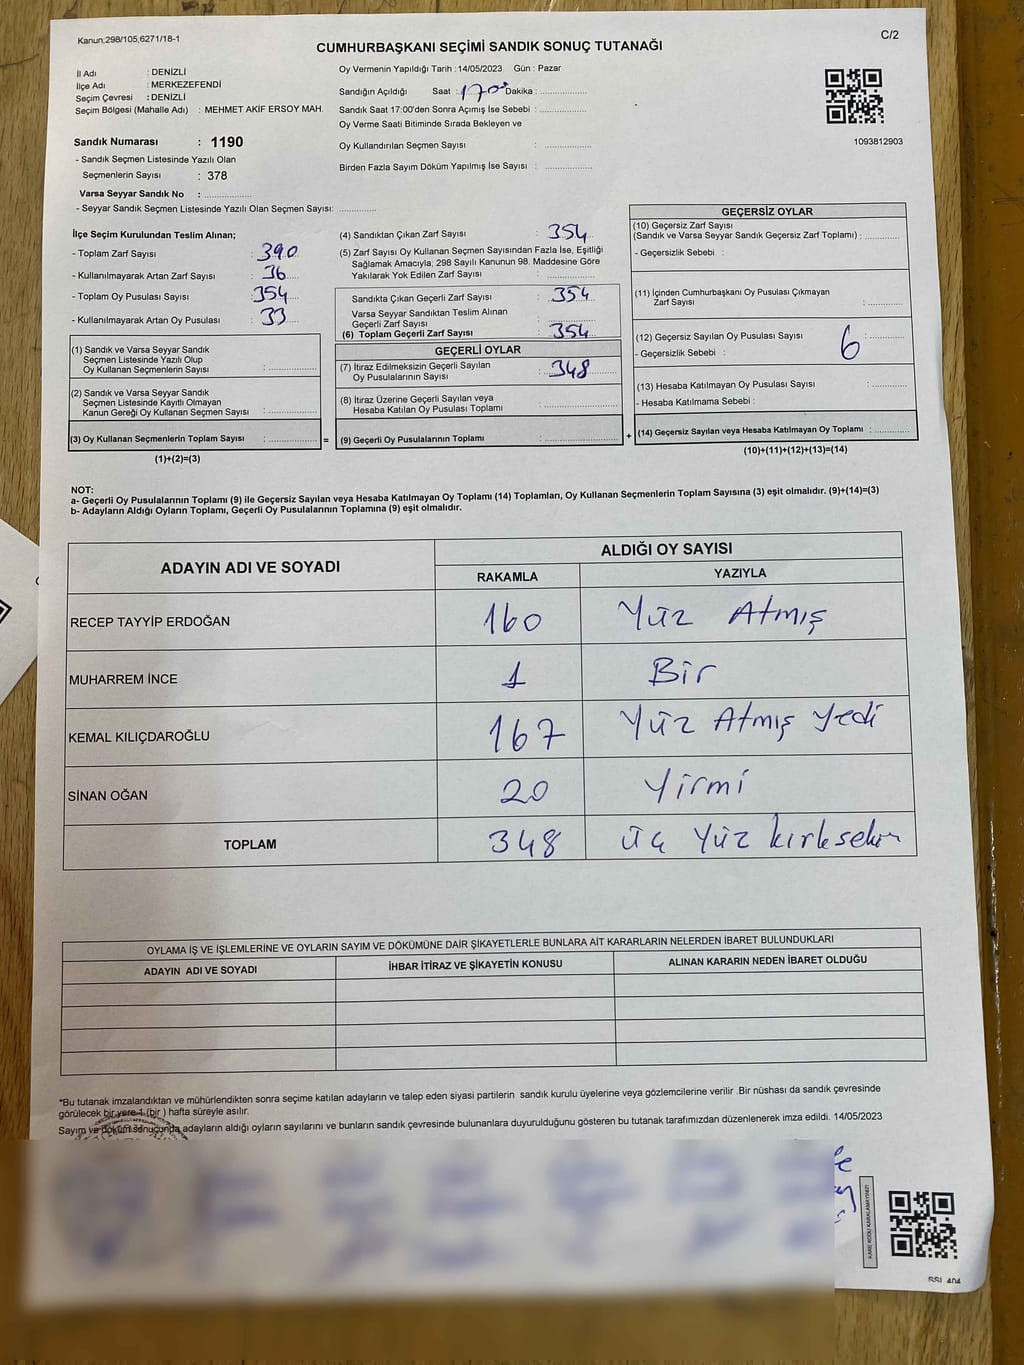 Kanun;298/105;6271/18-1
C/2
CUMHURBAŞKANI SEÇİMİ SANDIK SONUÇ TUTANAĞI
İl Adı : DENİZLİ
İlçe Adı : MERKEZEFENDİ
Seçim Çevresi : DENİZLİ
Seçim Bölgesi (Mahalle Adı) : MEHMET AKİF ERSOY MAH.
Sandık Numarası : 1190
- Sandık Seçmen Listesinde Yazılı Olan
Seçmenlerin Sayısı : 378
Varsa Seyyar Sandık No : ................
- Seyyar Sandık Seçmen Listesinde Yazılı Olan Seçmen Sayısı: .............
Oy Vermenin Yapıldığı Tarih : 14/05/2023 Gün : Pazar
Sandığın Açıldığı Saat : 17 00 Dakika : ................
Sandık Saat 17:00'den Sonra Açımış İse Sebebi : ................
Oy Verme Saati Bitiminde Sırada Bekleyen ve
Oy Kullandırılan Seçmen Sayısı : ................
Birden Fazla Sayım Döküm Yapılmış İse Sayısı : ................
1093812903
İlçe Seçim Kurulundan Teslim Alınan;
- Toplam Zarf Sayısı : 390
- Kullanılmayarak Artan Zarf Sayısı : 36
- Toplam Oy Pusulası Sayısı : 354
- Kullanılmayarak Artan Oy Pusulası : 33
(1) Sandık ve Varsa Seyyar Sandık
Seçmen Listesinde Yazılı Olup
Oy Kullanan Seçmenlerin Sayısı : ................
(2) Sandık ve Varsa Seyyar Sandık
Seçmen Listesinde Kayıtlı Olmayan
Kanun Gereği Oy Kullanan Seçmen Sayısı : ................
(3) Oy Kullanan Seçmenlerin Toplam Sayısı : ................ =
(1)+(2)=(3)
(4) Sandıktan Çıkan Zarf Sayısı : 354
(5) Zarf Sayısı Oy Kullanan Seçmen Sayısından Fazla İse, Eşitliği
Sağlamak Amacıyla; 298 Sayılı Kanunun 98. Maddesine Göre
Yakılarak Yok Edilen Zarf Sayısı : ................
Sandıkta Çıkan Geçerli Zarf Sayısı : 354
Varsa Seyyar Sandıktan Teslim Alınan
Geçerli Zarf Sayısı : ................
(6) Toplam Geçerli Zarf Sayısı : 354
GEÇERLİ OYLAR
(7) İtiraz Edilmeksizin Geçerli Sayılan
Oy Pusulalarının Sayısı : 348
(8) İtiraz Üzerine Geçerli Sayılan veya
Hesaba Katılan Oy Pusulası Toplamı : ................
(9) Geçerli Oy Pusulalarının Toplamı : ................ +
GEÇERSİZ OYLAR
(10) Geçersiz Zarf Sayısı
(Sandık ve Varsa Seyyar Sandık Geçersiz Zarf Toplamı) : ............
- Geçersizlik Sebebi :
(11) İçinden Cumhurbaşkanı Oy Pusulası Çıkmayan
Zarf Sayısı : ............
(12) Geçersiz Sayılan Oy Pusulası Sayısı : 6
- Geçersizlik Sebebi :
(13) Hesaba Katılmayan Oy Pusulası Sayısı : ............
- Hesaba Katılmama Sebebi :
(14) Geçersiz Sayılan veya Hesaba Katılmayan Oy Toplamı : ............
(10)+(11)+(12)+(13)=(14)
NOT:
a- Geçerli Oy Pusulalarının Toplamı (9) ile Geçersiz Sayılan veya Hesaba Katılmayan Oy Toplamı (14) Toplamları, Oy Kullanan Seçmenlerin Toplam Sayısına (3) eşit olmalıdır. (9)+(14)=(3)
b- Adayların Aldığı Oyların Toplamı, Geçerli Oy Pusulalarının Toplamına (9) eşit olmalıdır.
ADAYIN ADI VE SOYADI
ALDIĞI OY SAYISI
RAKAMLA YAZIYLA
RECEP TAYYİP ERDOĞAN 160 Yüz Atmış
MUHARREM İNCE 1 Bir
KEMAL KILIÇDAROĞLU 167 Yüz Atmış Yedi
SİNAN OĞAN 20 Yirmi
TOPLAM 348 üç Yüz kırksekiz
OYLAMA İŞ VE İŞLEMLERİNE VE OYLARIN SAYIM VE DÖKÜMÜNE DAİR ŞİKAYETLERLE BUNLARA AİT KARARLARIN NELERDEN İBARET BULUNDUKLARI
ADAYIN ADI VE SOYADI İHBAR İTİRAZ VE ŞİKAYETİN KONUSU ALINAN KARARIN NEDEN İBARET OLDUĞU
*Bu tutanak imzalandıktan ve mühürlendikten sonra seçime katılan adayların ve talep eden siyasi partilerin sandık kurulu üyelerine veya gözlemcilerine verilir .Bir nüshası da sandık çevresinde
görülecek bir yere 1 (bir ) hafta süreyle asılır.
Sayım ve döküm sonucunda adayların aldığı oyların sayılarını ve bunların sandık çevresinde bulunanlara duyurulduğunu gösteren bu tutanak tarafımızdan düzenlenerek imza edildi. 14/05/2023
KARE KODU KARALAMAYINIZ!